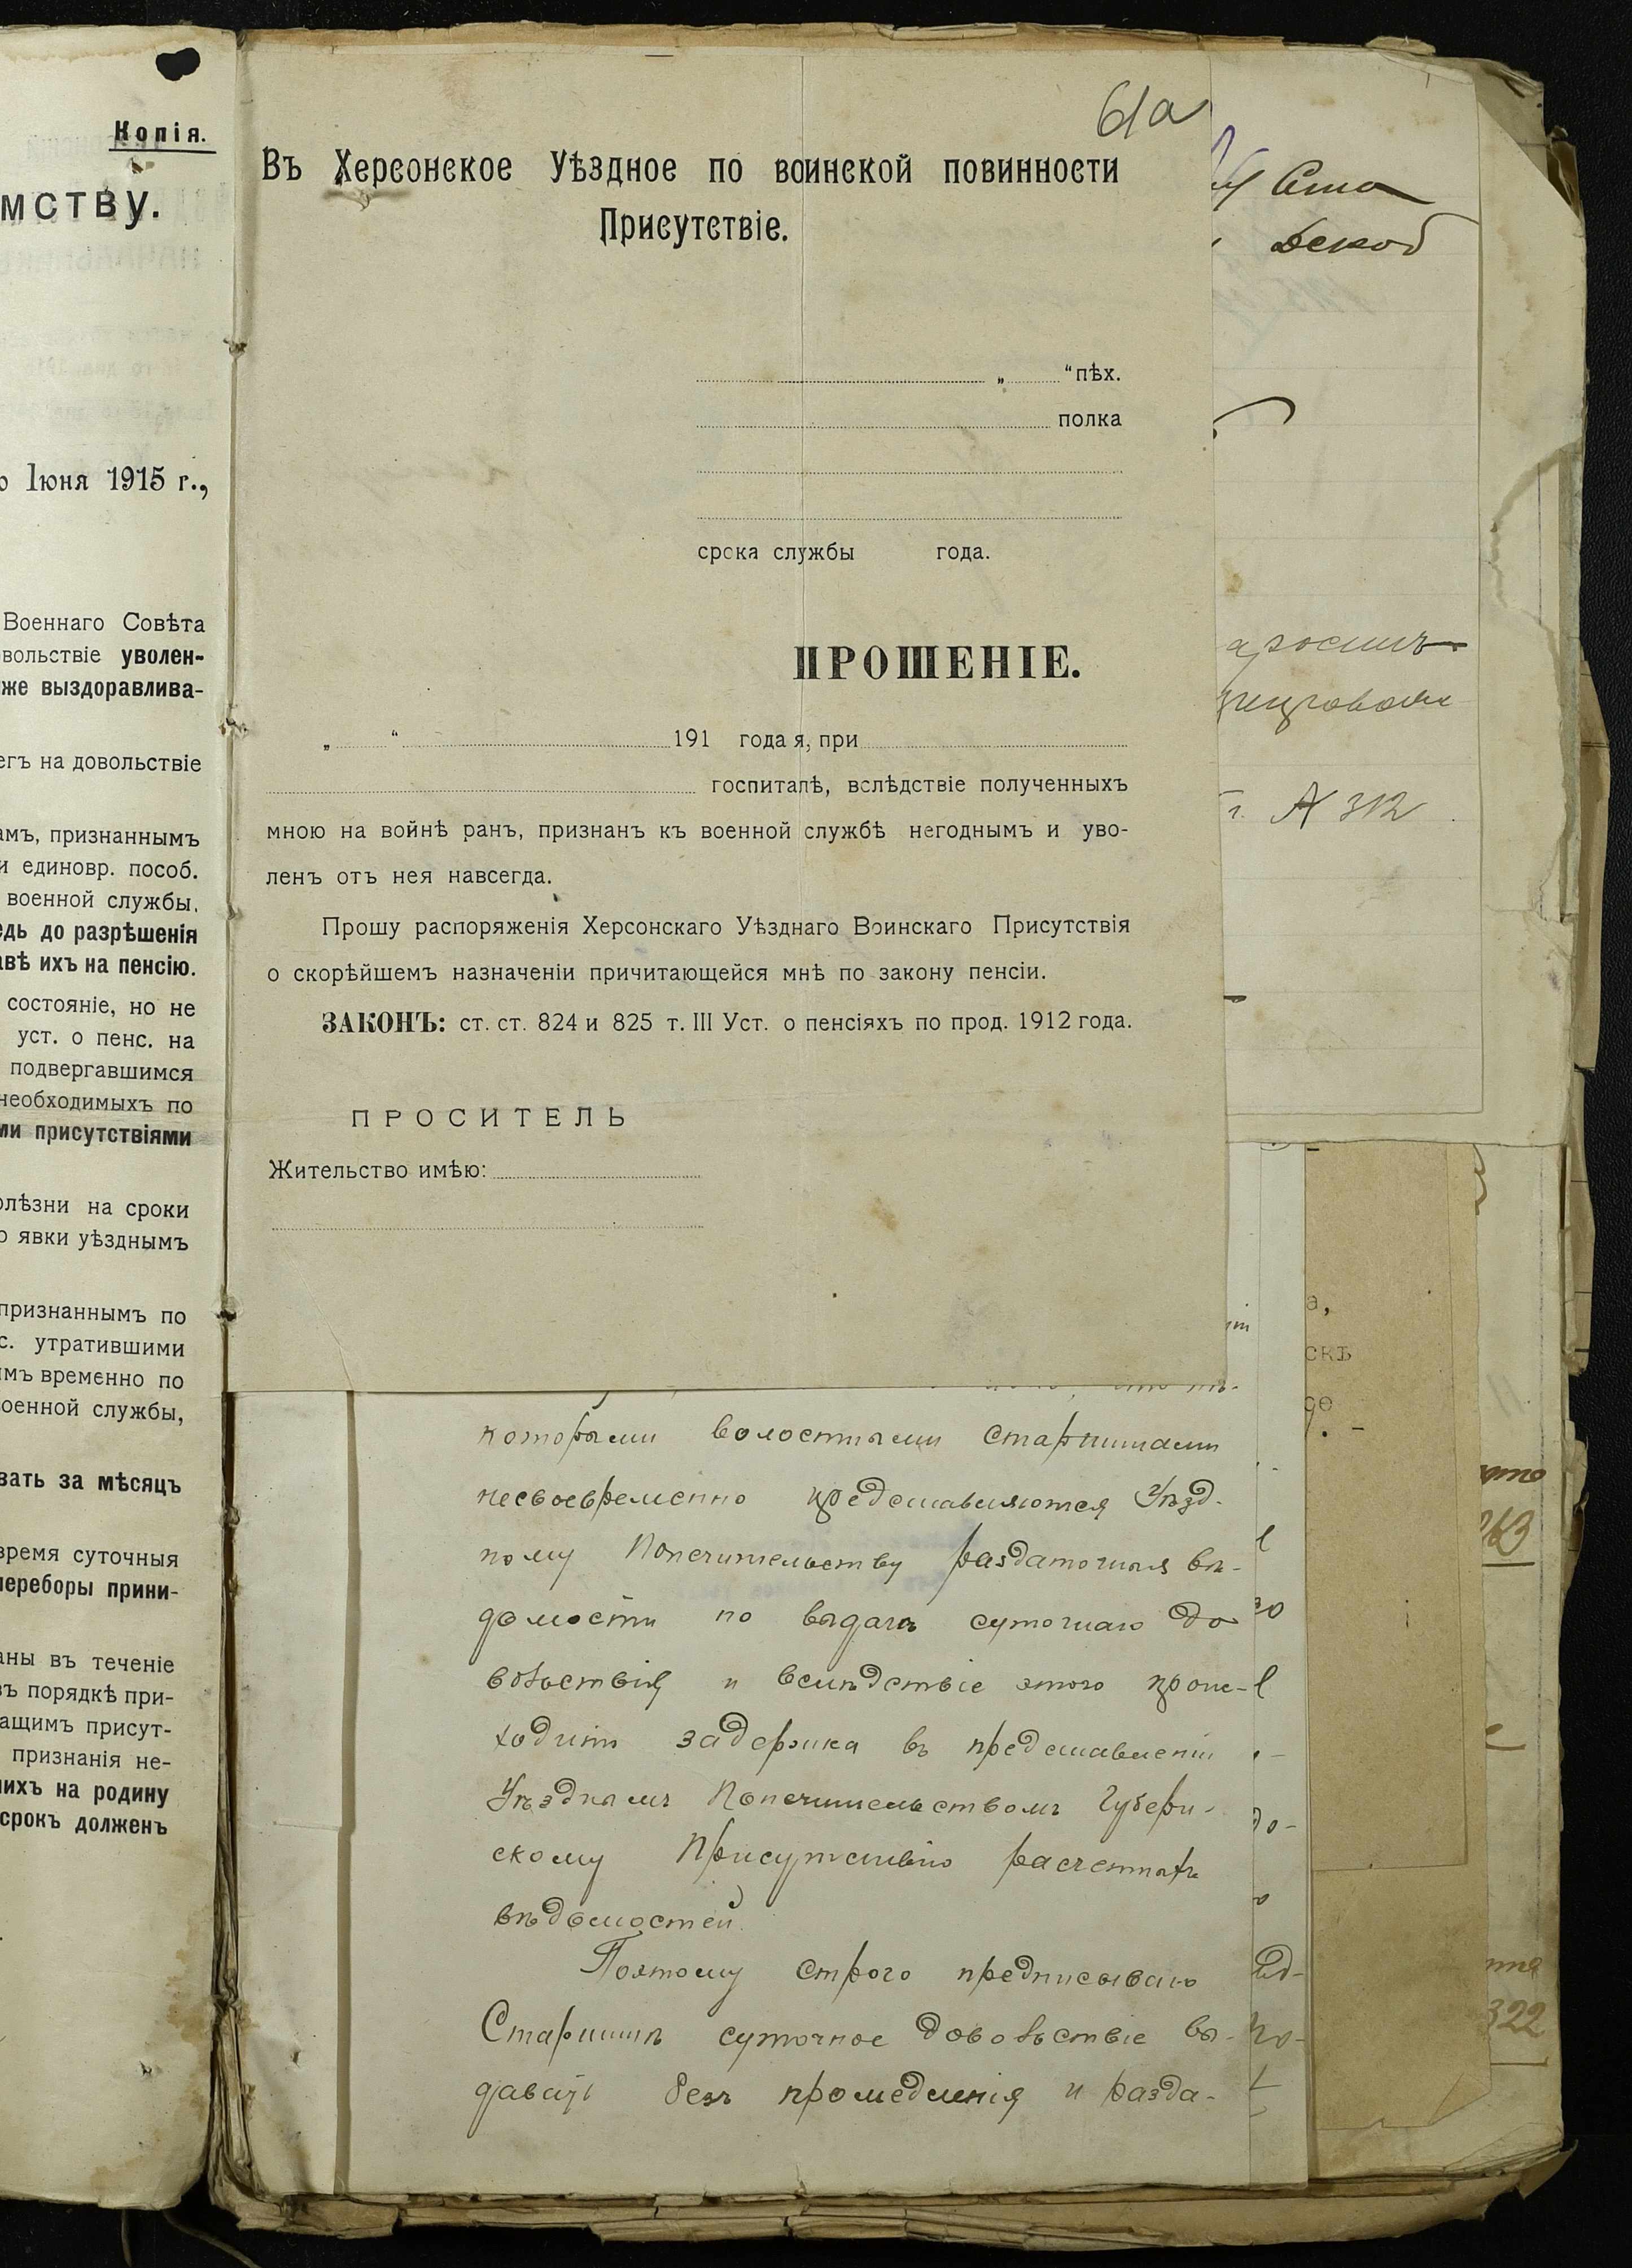 Копія.
мству.
Іюня 1915 г.,
Военнаго Совѣта
вольствіе уволен-
же выздоравлива-
егъ на довольствіе
амъ, признаннымъ
и единовр. пособ.
военной службы,
едь до разрѣшенія
авѣ ихъ на пенсію.
состояніе, но не
уст. о пенс. на
подвергавшимся
необходимыхъ по
ми присутствіями
олѣзни на сроки
о явки уѣзднымъ
признаннымъ по
с. утратившими
имъ временно по
военной службы,
вать за мѣсяцъ
время суточныя
переборы прини-
аны въ теченіе
въ порядкѣ при-
ащимъ присут-
признанія не-
шихъ на родину
срокъ долженъ
61а
Въ Херсонское Уѣздное по воинской повинности
Присутствіе.
„ “ пѣх.
полка
срока службы года.
ПРОШЕНІЕ.
„ “ 191 года я, при
госпиталѣ, вслѣдствіе полученныхъ
мною на войнѣ ранъ, признанъ къ военной службѣ негоднымъ и уво-
ленъ отъ нея навсегда.
Прошу распоряженія Херсонскаго Уѣзднаго Воинскаго Присутствія
о скорѣйшемъ назначеніи причитающейся мнѣ по закону пенсіи.
ЗАКОНЪ: ст. ст. 824 и 825 т. III Уст. о пенсіяхъ по прод. 1912 года.
ПРОСИТЕЛЬ
Жительство имѣю:
которыми волостными старшинами
несвоевременно представляются Уѣзд-
ному Попечительству раздаточныя вѣ-
домости по выдачѣ суточнаго до
вольствія и вслѣдствіе этого проис-
ходитъ задержка въ представленіи
Уѣзднымъ Попечительствомъ Губерн-
скому Присутствію расчетныхъ
вѣдомостей.
Поэтому строго предписываю
Старшинѣ суточное довольствіе вы-
давать безъ промедленія и разда-
312
а,
скѣ
322